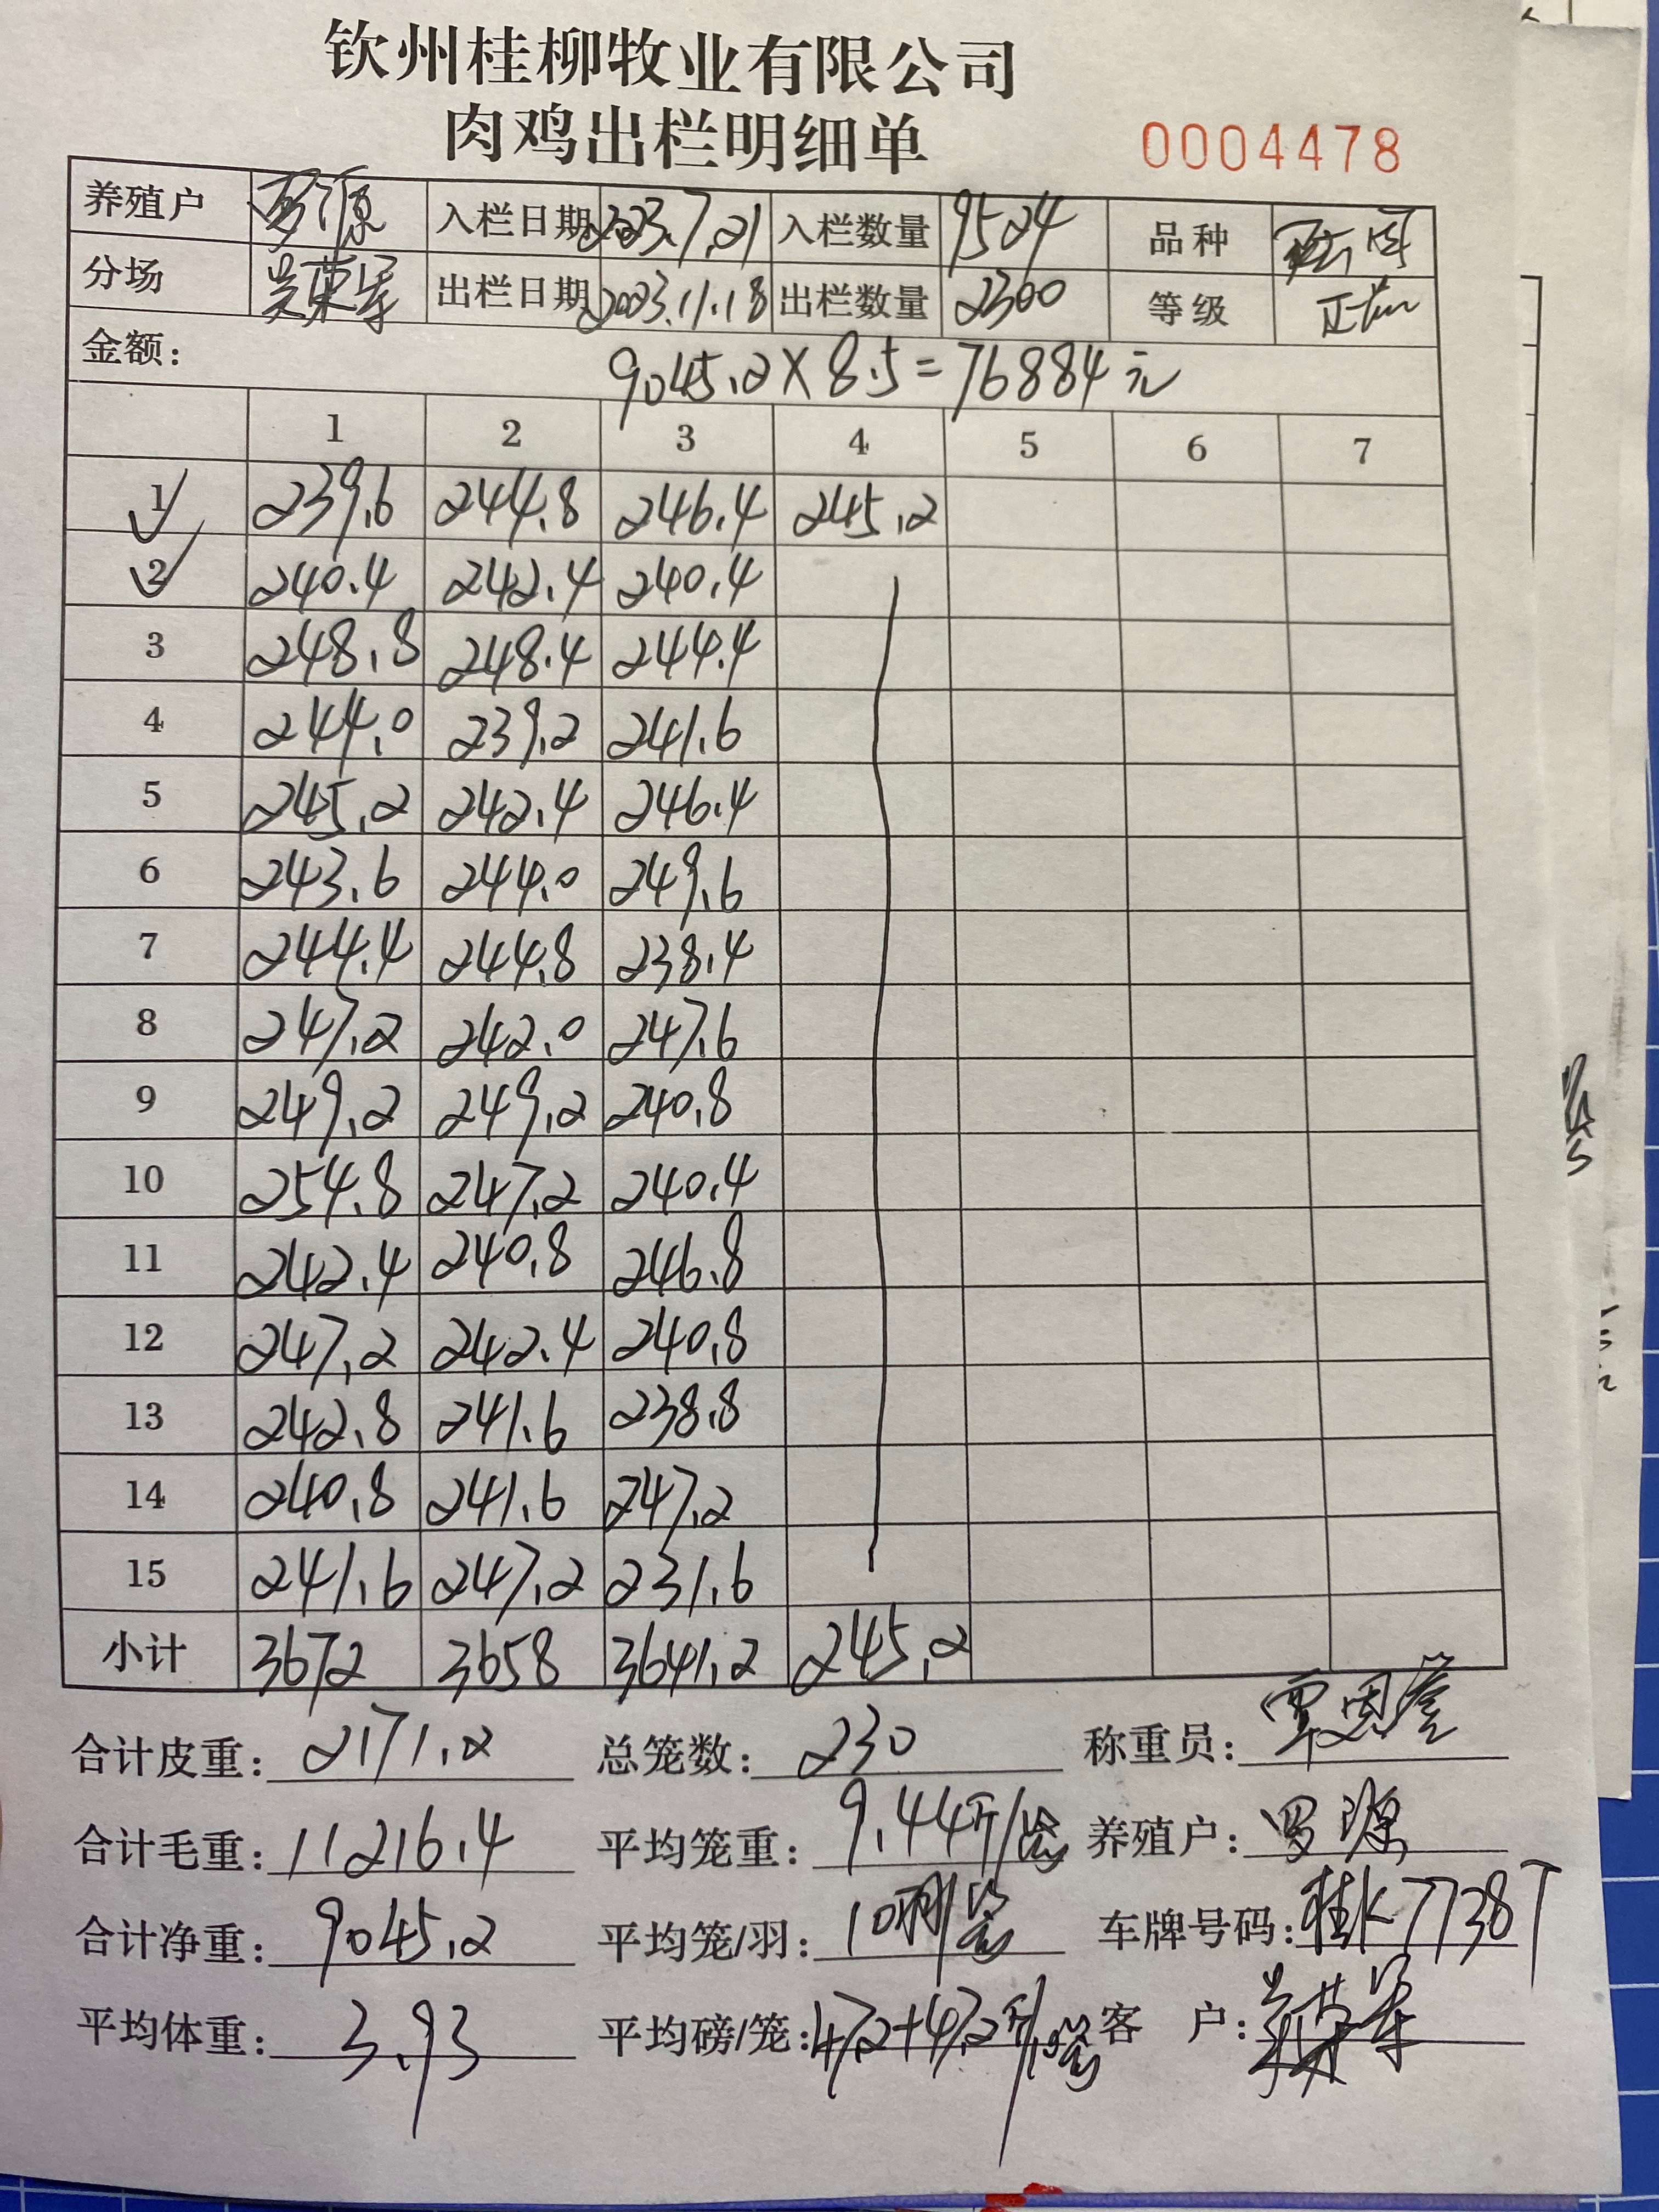 钦州桂柳牧业有限公司
肉鸡出栏明细单 0004478
养殖户 罗源 入栏日期 2023.7.21 入栏数量 9524 品种
分场 吴荣军 出栏日期 2023.11.18 出栏数量 2300 等级
金额: 9045.2×8.5=76884元
1 2 3 4 5 6 7
1 239.6 244.8 246.4 245.2
2 240.4 242.4 240.4
3 248.8 248.4 244.4
4 244.0 239.2 241.6
5 245.2 242.4 246.4
6 243.6 244.0 249.6
7 244.4 244.8 238.4
8 247.2 242.0 247.6
9 249.2 249.2 240.8
10 254.8 247.2 240.4
11 242.4 240.8 246.8
12 247.2 242.4 240.8
13 242.8 241.6 238.8
14 240.8 241.6 247.2
15 241.6 247.2 231.6
小计 3672 3658 3641.2 245.2
合计皮重: 2171.2 总笼数: 230 称重员:
合计毛重: 11216.4 平均笼重: 9.44斤/笼 养殖户: 罗源
合计净重: 9045.2 平均笼/羽: 10羽/笼 车牌号码: 桂K7738T
平均体重: 3.93 平均磅/笼: 47.2+47.2斤/笼 客 户: 吴荣军